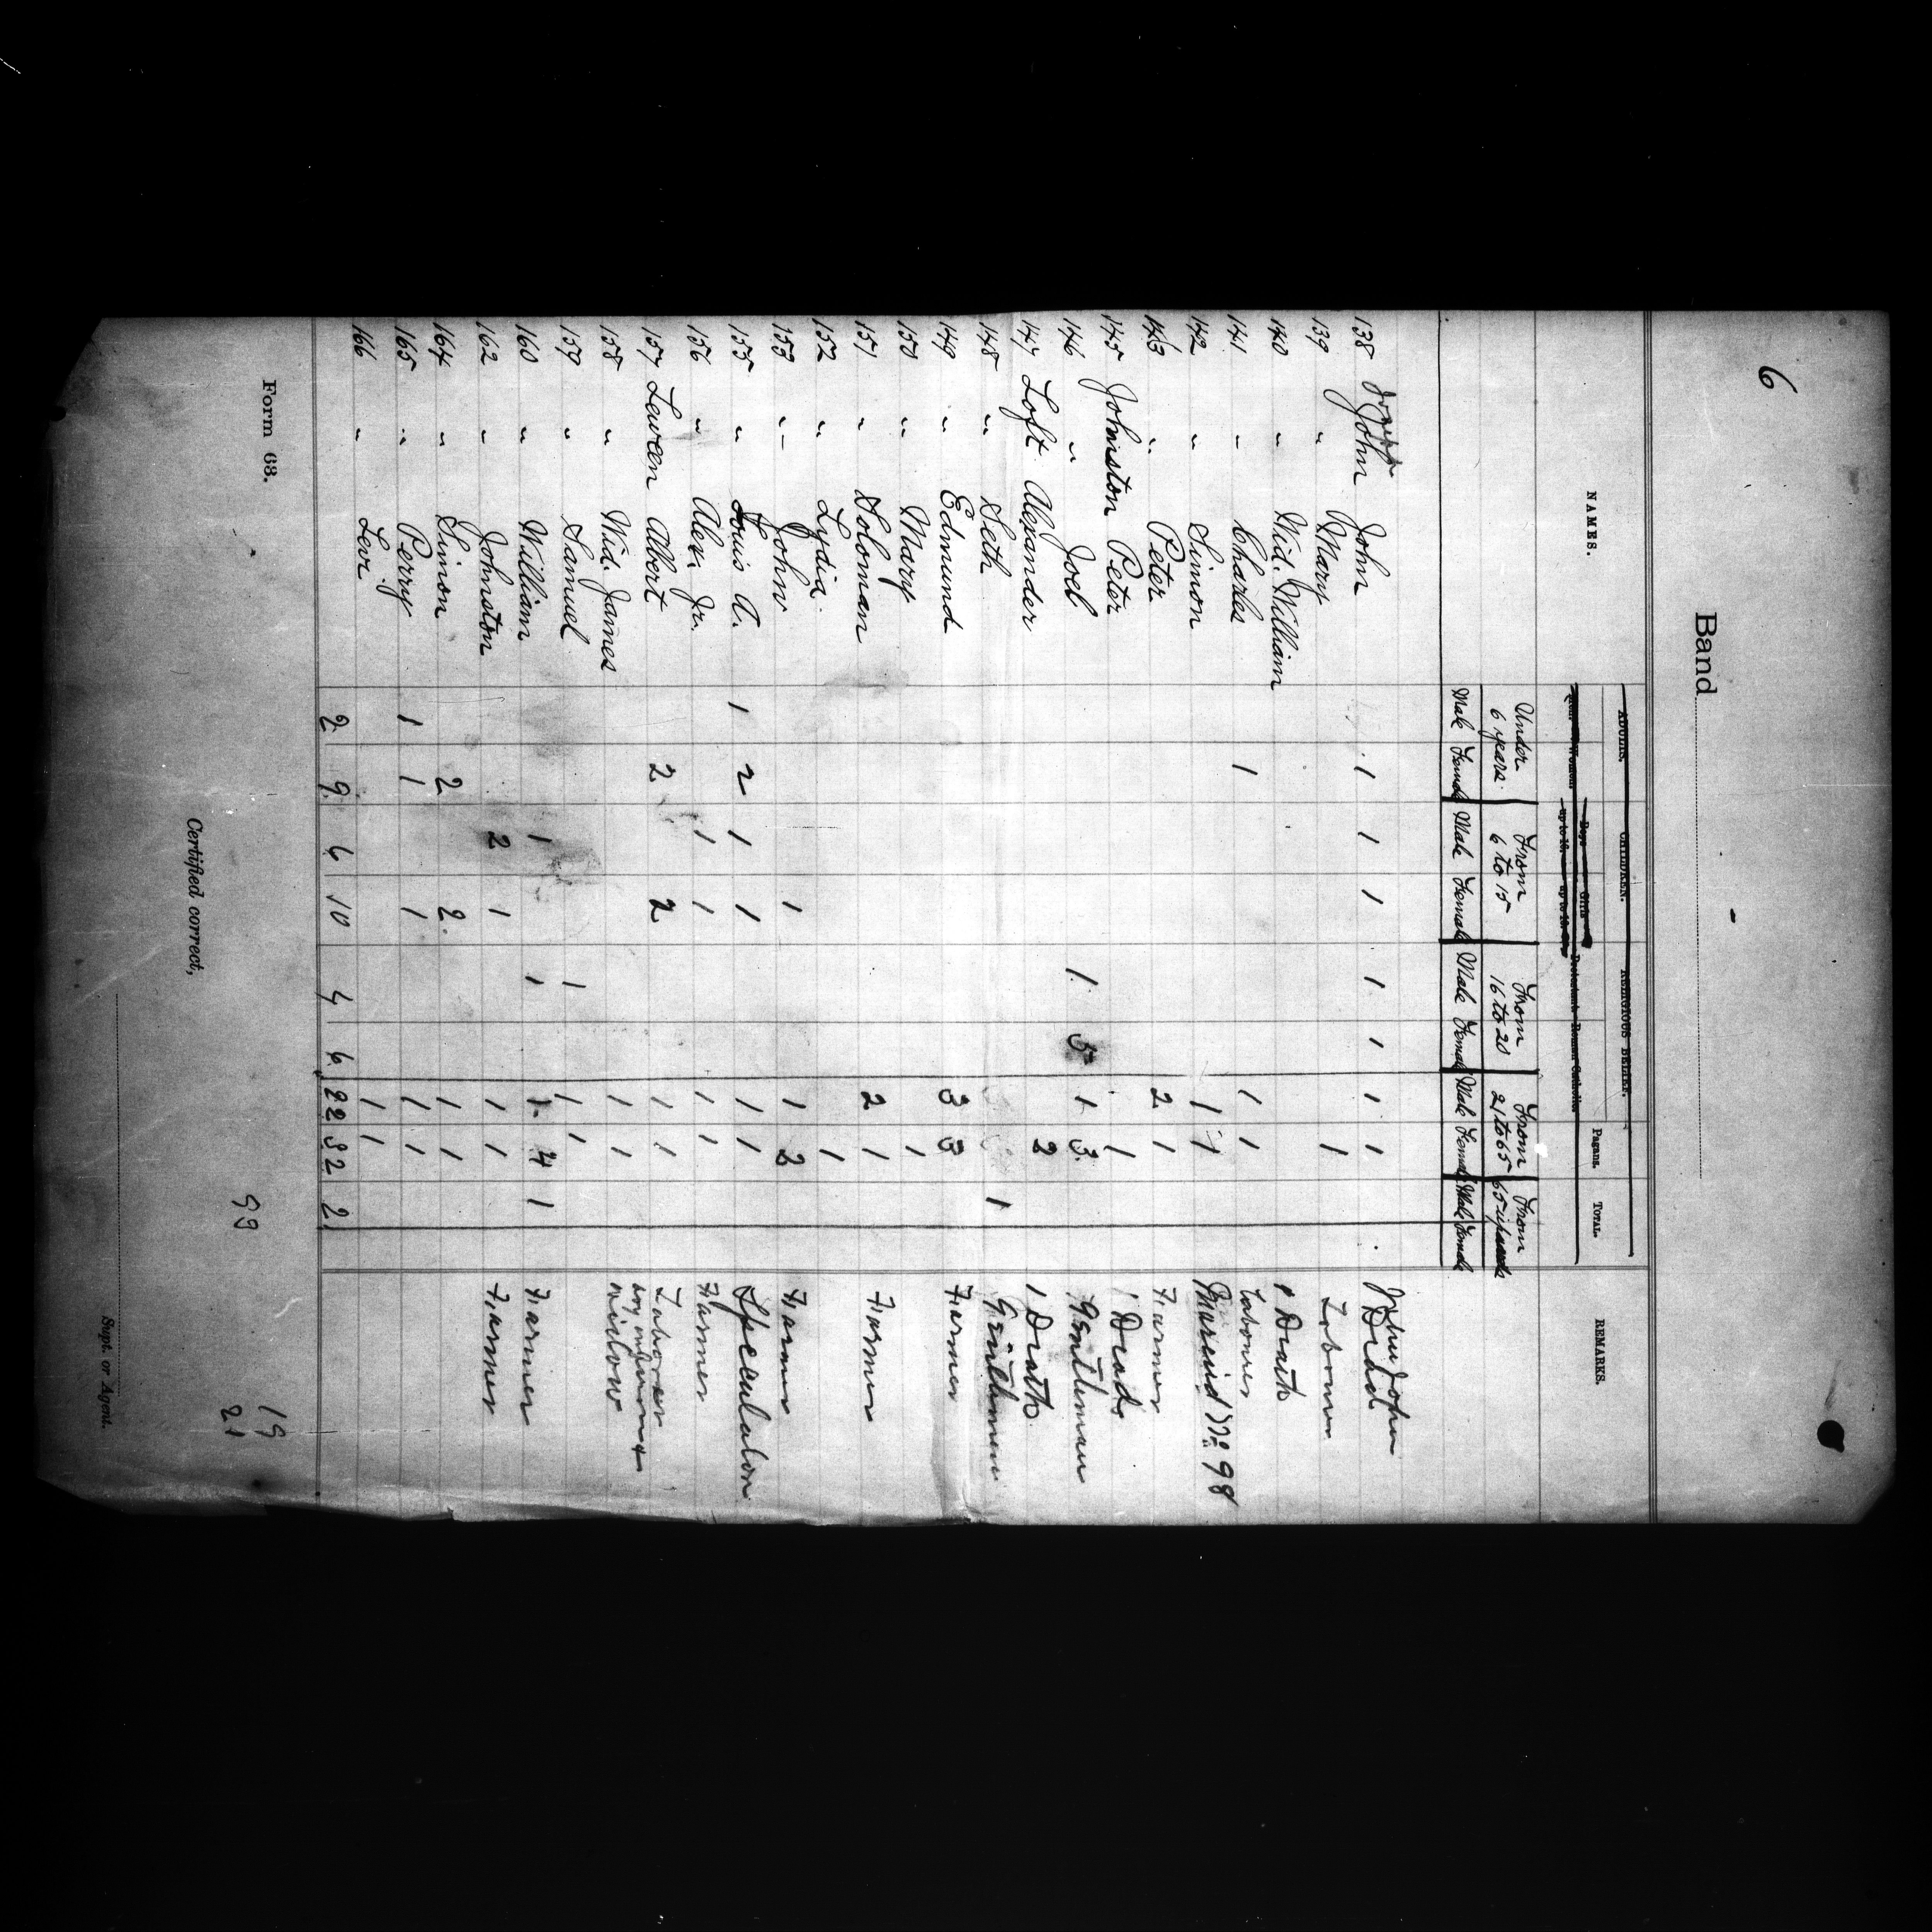 6
Band
NAMES. ADULTS. CHILDREN. RELIGIOUS BELIEF. Pagans. TOTAL. REMARKS.
Men. Women. Boys up to 16. Girls up to 16. Protestant. Roman Catholic
Under 6 years. From 6 to 15 From 16 to 20 From 21 to 65 From 65 upwards
Male Female Male Female Male Female Male Female Male Female
138 John John 1 1 1 1 1 1 1 John John Dead
139 " Mary 1 Labourer
140 " Wid. William 1 Death
141 " Charles 1 1 1 Labourer
142 " Simon 1 1 Married No 98
143 " Peter 2 1 Farmer
145 Johnston Peter 1 1 Dead
146 " Joel 1. 5 1 3. Gentleman
147 Loft Alexander 2 1 Death
148 " Seth 1 Gentlemen
149 " Edmund 3 3 Farmer
150 " Mary 1
151 " Soloman 2 1 Farmer
152 " Lydia. 1
153 " John 1 1 2 Farmer
155 " Louis A. 1 2 1 1 1 1 Speculator
156 " Alex. Jr. 1 1 1 1 Farmer
157 Leween Albert 2 2 1 1 Laborer
158 " Wid. James 1 1 widow
159 " Samuel 1 1 1
160 " William 1 1 1 4 1 Farmer
162 " Johnston 2 1 1 1 Farmer
164 " Simon 2 2. 1 1
165 " Perry 1 1 1 1 1
166 " Levi 1 1
2 9 6 10 4 6 22 32 2
Form 63.
93
19
21
Certified correct,
Supt. or Agent.